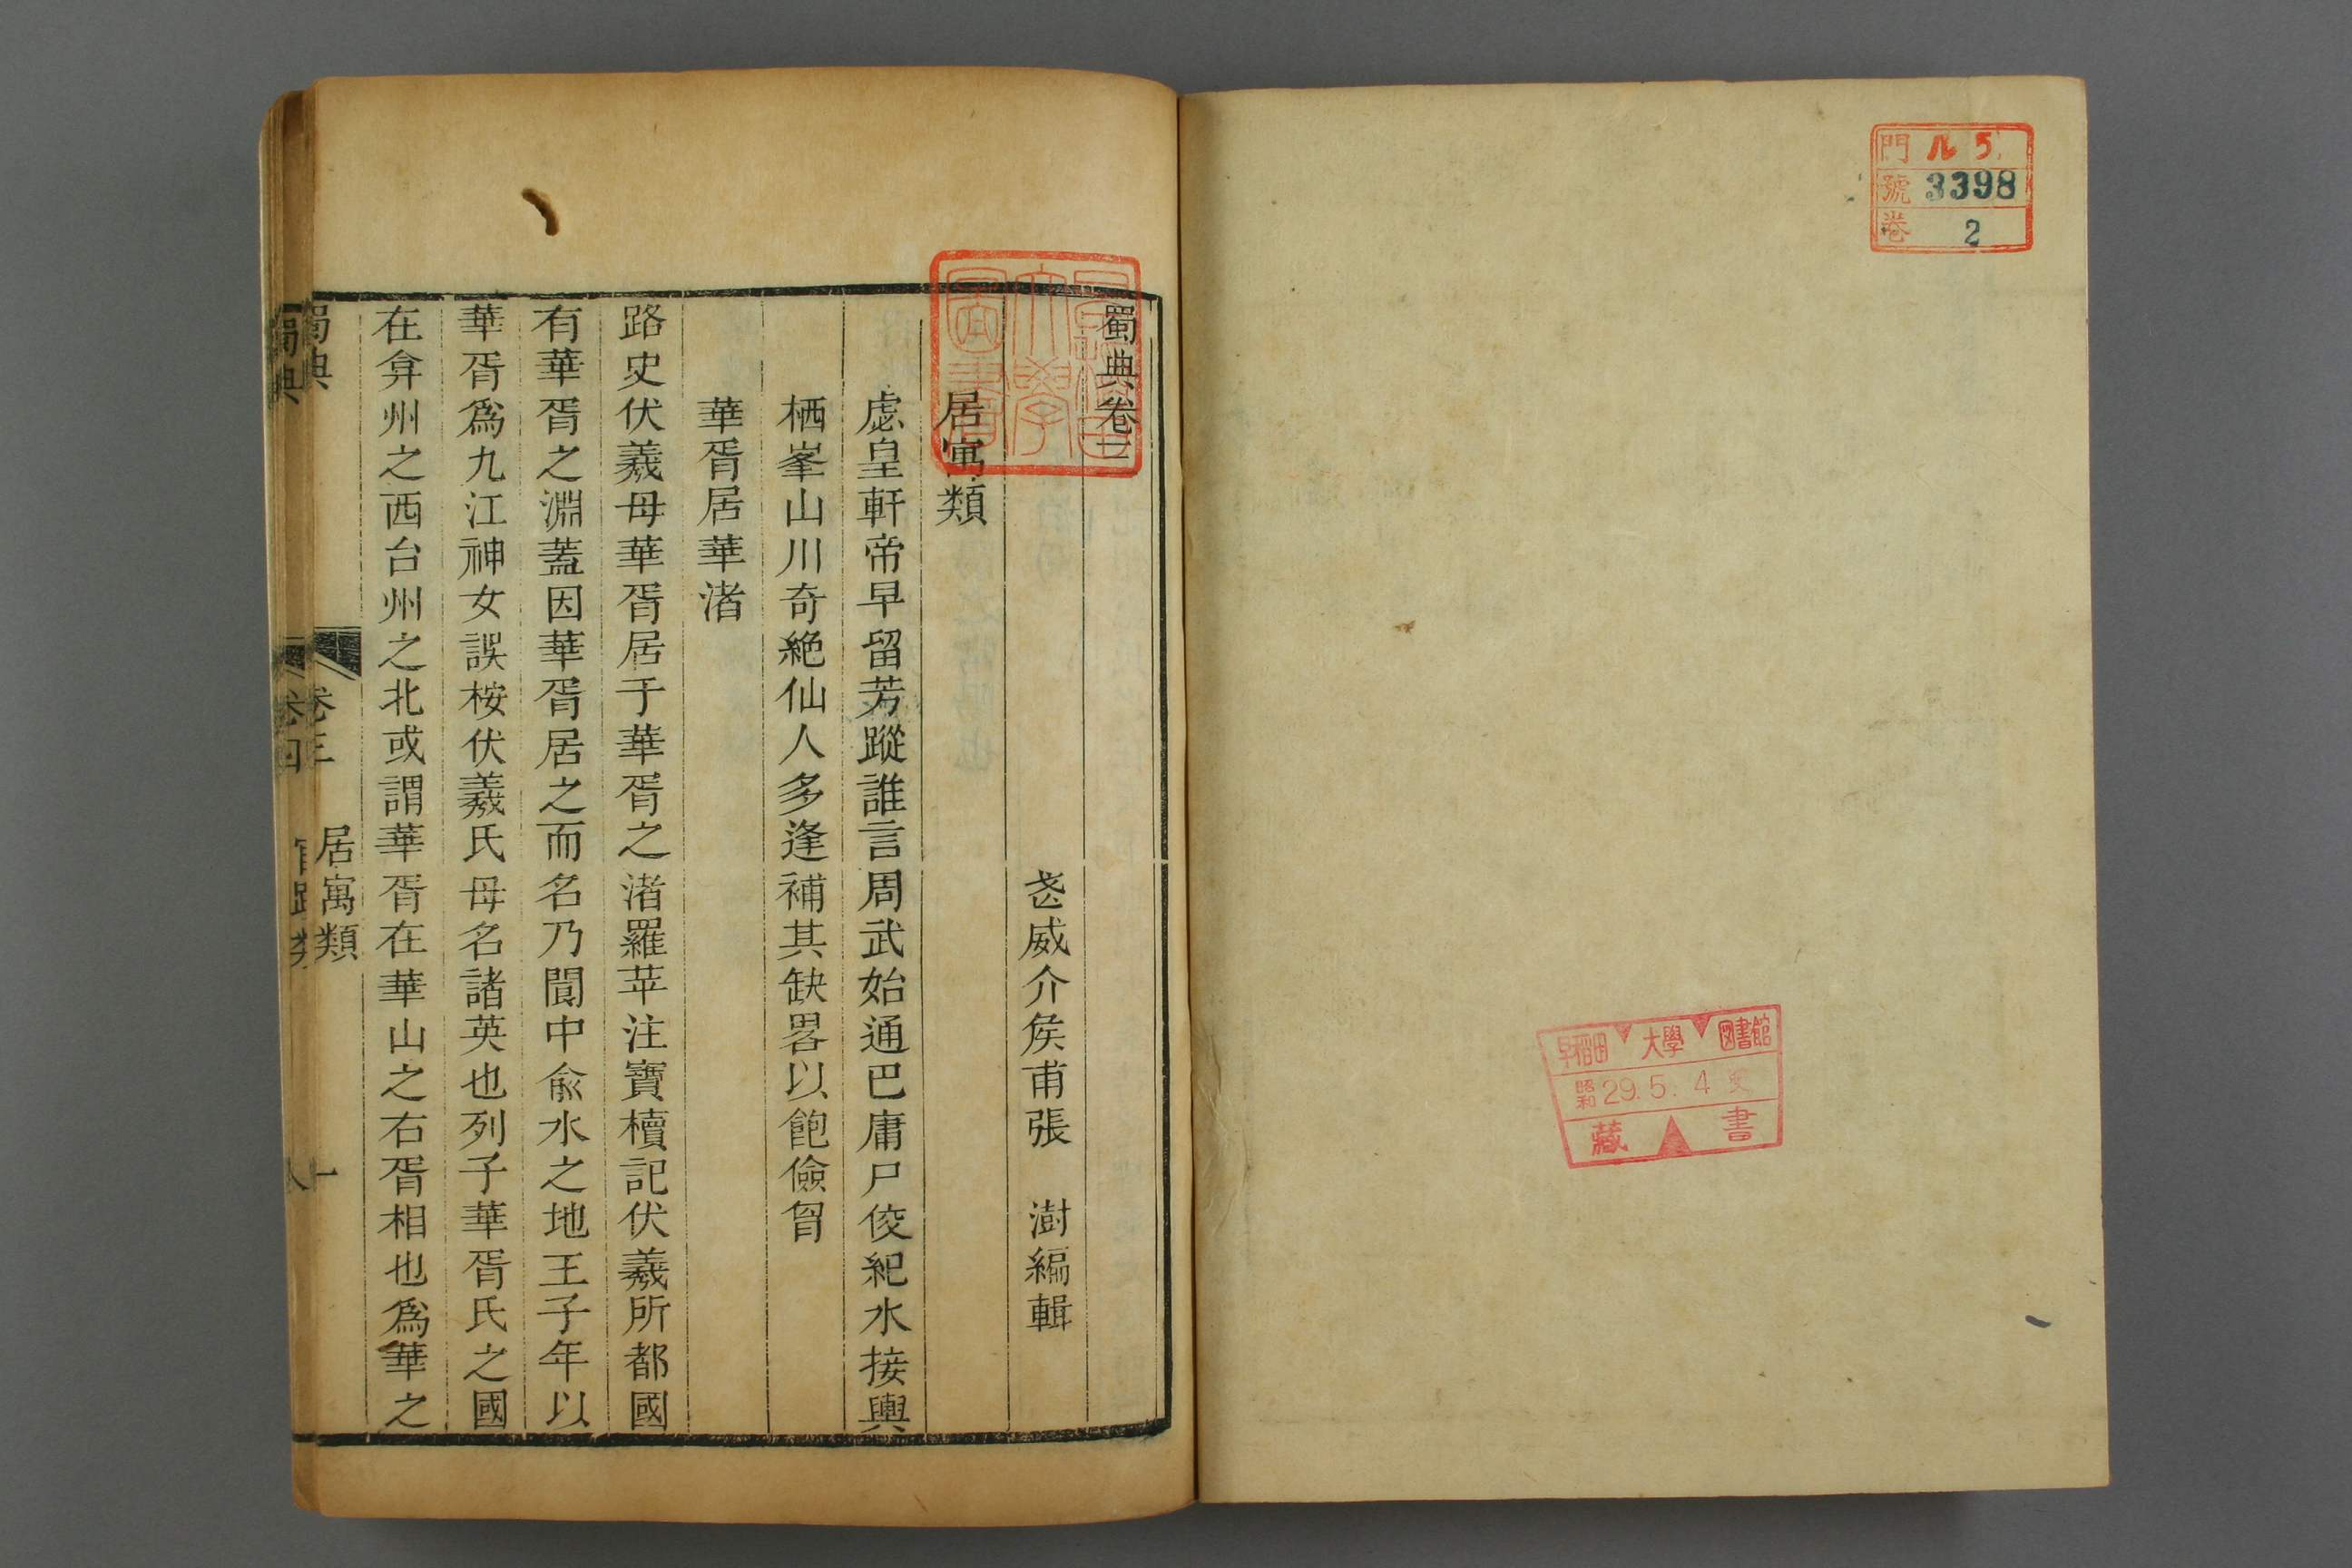 門 ル5
號 3398
卷 2
早稻田 大學 圖書館
昭和 29. 5. 4
藏書
蜀典卷三
武威介侯甫張 澍編輯
居寓類
虙皇軒帝早留芳蹤誰言周武始通巴庸尸佼紀水接輿
栖峯山川奇絶仙人多逢補其缺畧以飽儉胷
華胥居華渚
路史伏羲母華胥居于華胥之渚羅苹注寶櫝記伏羲所都國
有華胥之淵蓋因華胥居之而名乃閬中俞水之地王子年以
華胥爲九江神女誤桉伏羲氏母名諸英也列子華胥氏之國
在弇州之西台州之北或謂華胥在華山之右胥相也爲華之
蜀典 卷三 居寓類 一
蜀典 卷四